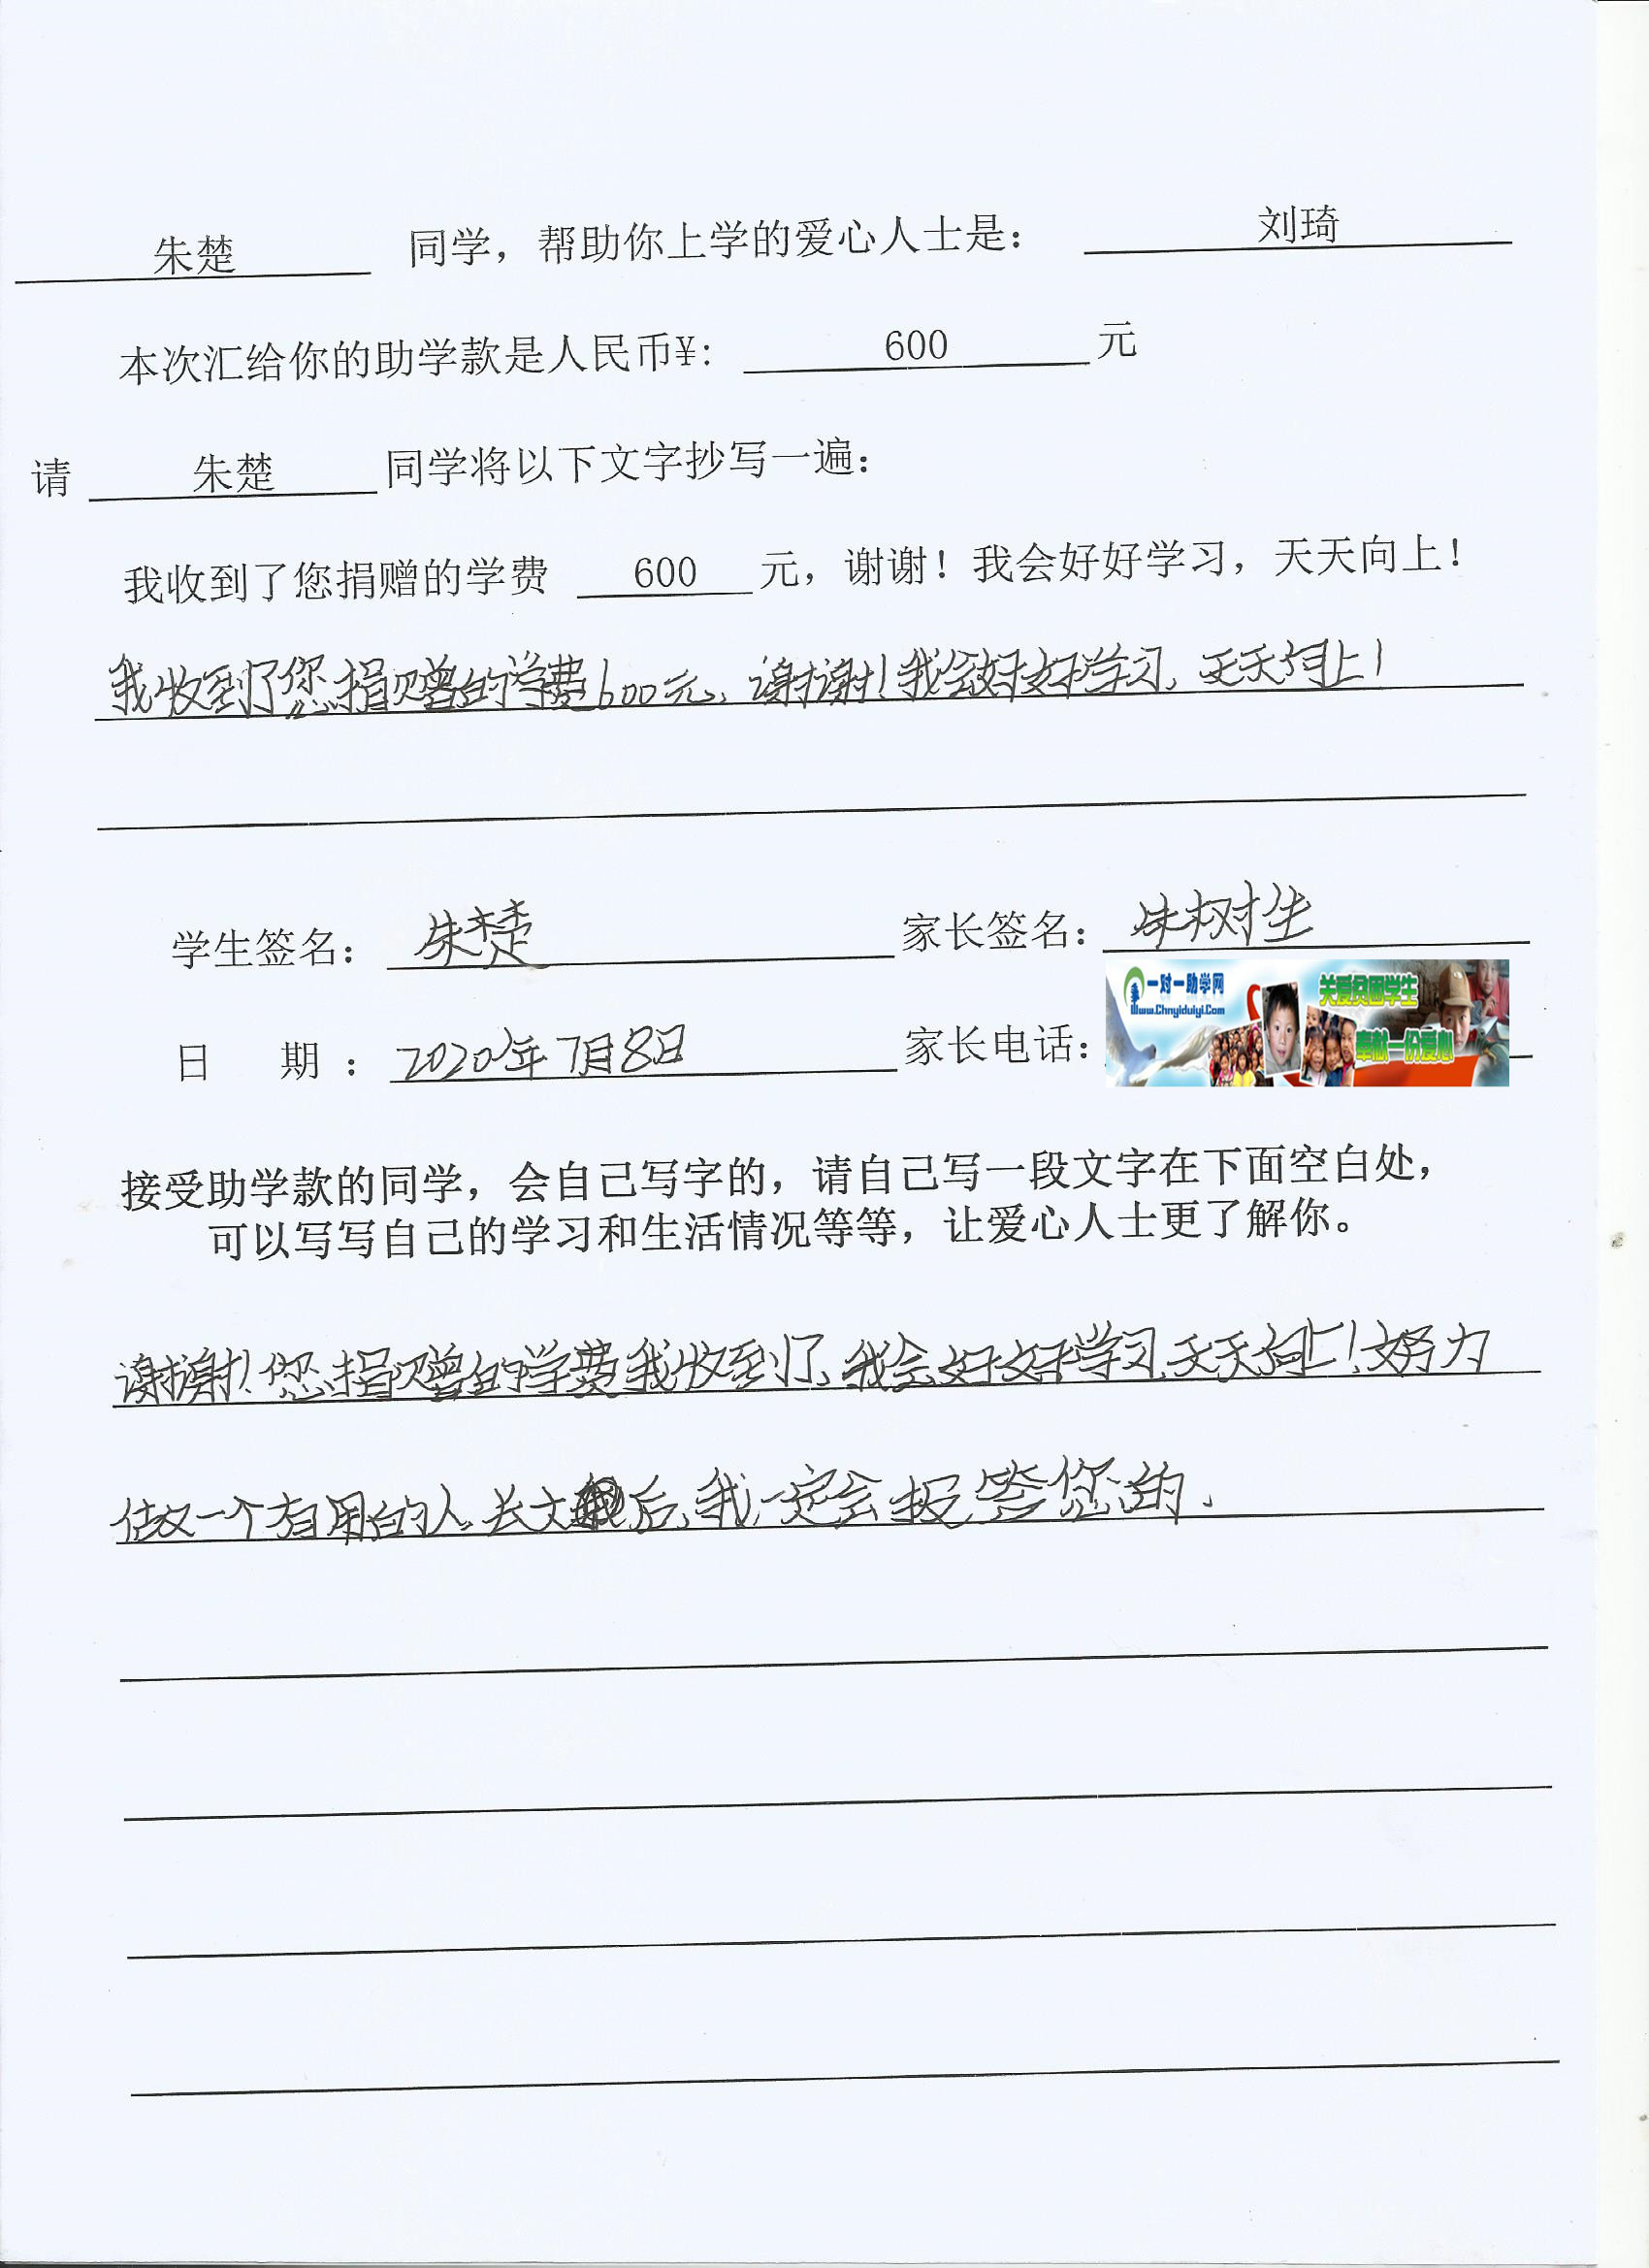 朱楚 同学，帮助你上学的爱心人士是： 刘琦
本次汇给你的助学款是人民币¥： 600 元
请 朱楚 同学将以下文字抄写一遍：
我收到了您捐赠的学费 600 元，谢谢！我会好好学习，天天向上！
我收到了您捐赠的学费600元、谢谢！我会好好学习、天天向上！
学生签名： 朱楚 家长签名： 朱树生
一对一助学网 关爱贫困学生
www.Chnyiduiyi.Com
日 期 ： 2020年7月8日 家长电话： 奉献一份爱心
接受助学款的同学，会自己写字的，请自己写一段文字在下面空白处，
可以写写自己的学习和生活情况等等，让爱心人士更了解你。
谢谢！您捐赠的学费我收到了、我会好好学习、天天向上！努力
做一个有用的人、长大后、我一定会报答您的、